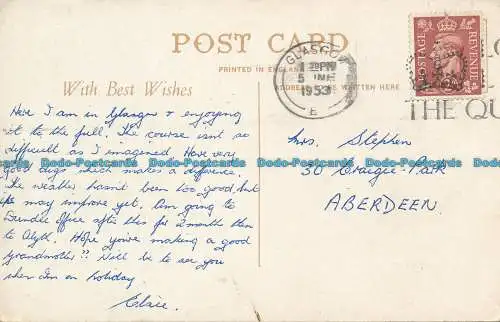 POST CARD
PRINTED IN ENGLAND
With Best Wishes
ADDRESS TO BE WRITTEN HERE
GLASGOW
PM
5 JNE
1953
E
POSTAGE
REVENUE
LO
THE QU
Here I am in Glasgow & enjoying
it to the full. The course isnt so
difficult as I imagined. Have very
good digs which makes a diference.
The weather hasn't been too good, but
it may improve yet. Am going to
Dundee Office after this for 2 months then
to Alyth. Hope you're making a good
Grandmother?? Will be to see you
when I'm on holiday.
Elsie.
Mrs. Stephen
30 Craigie Park
ABERDEEN.
Dodo-Postcards Dodo-Postcards Dodo-Postcards Dodo-Postcards